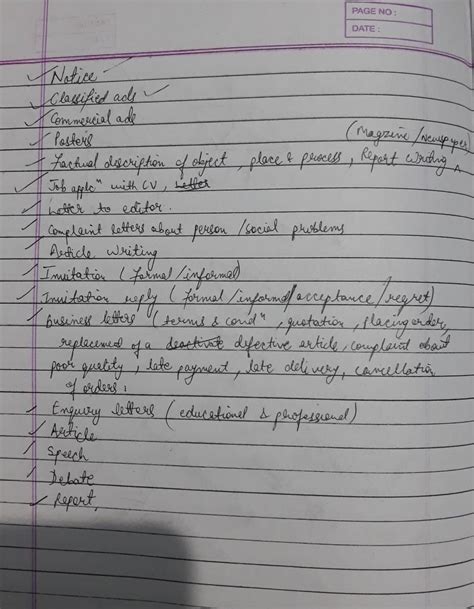 PAGE NO :
DATE :
Notice
Classified ads
Commercial ads
Posters (Magzine / Newspaper)
Factual description of object, place & process, Report Writing
Job applcⁿ with CV, Letter
Letter to editor.
Complaint letters about person / social problems
Article writing
Invitation (Formal / informal)
Invitation reply (Formal / informal / acceptance / regret)
Business letters (terms & condⁿ, quotation, placing order,
replacement of a defective article, complaint about
poor quality, late payment, late delivery, cancellation
of orders :
Enquiry letters (educational & professional)
Article
Speech
Debate
Report,